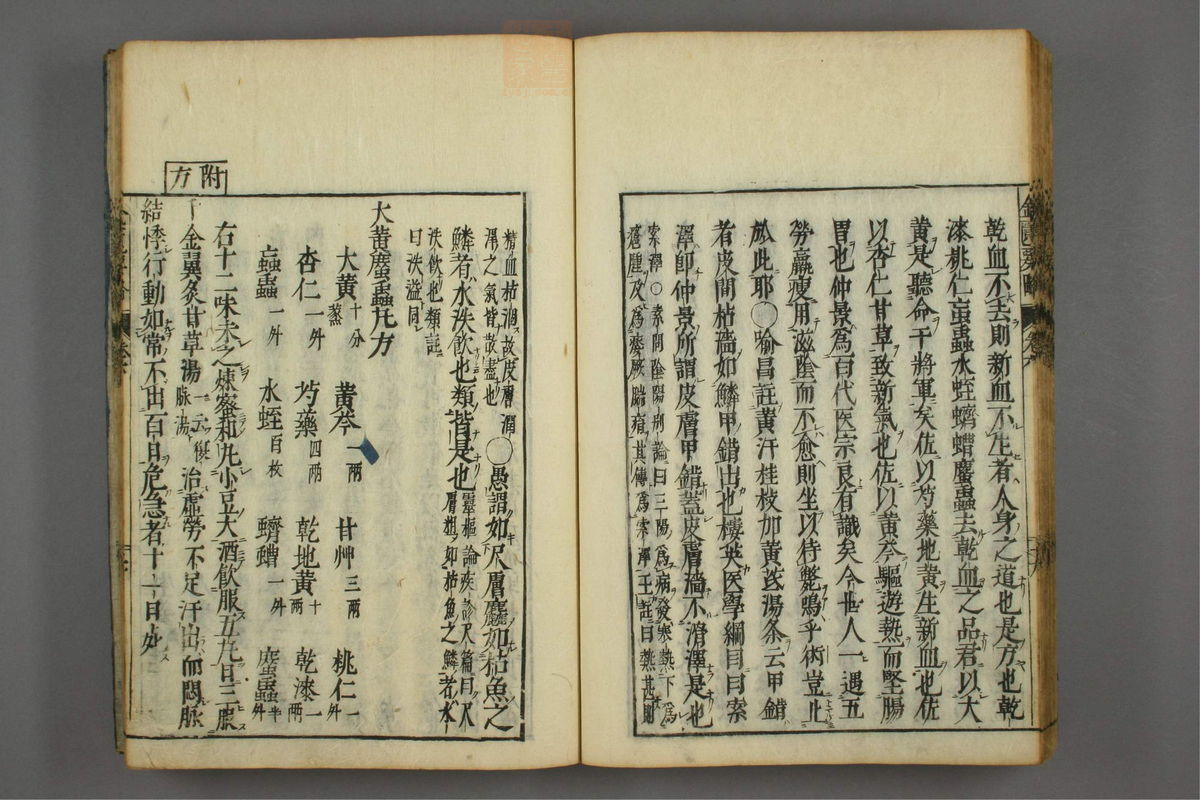 乾血不去則新血不生者人身之道也是方也乾
漆桃仁䖟蟲水蛭蠐螬䗪蟲去乾血之品君以大
黃是聽命干將軍矣佐以芍藥地黃生新血也佐
以杏仁甘草致新氣也佐以黃芩驅遊熱而堅腸
胃也仲景為百代医宗良有識矣今世人一遇五
勞羸瘦用滋陰而不愈則坐以待斃嗚乎術豈止
於此耶○喻昌註黃汗桂枝加黃芪湯条云甲錯
者皮間枯濇如鱗甲錯出也樓英医學綱目曰索
澤即仲景所謂皮膚甲錯蓋皮膚濇不滑澤是也
索澤○素問陰陽別論曰三陽為病發寒熱下為
癰腫及為痿厥腨㾓其傳為索澤王註曰熱甚則
精血枯涸故皮膚潤
澤之氣皆散盡也○愚謂如尺膚麤如枯魚之
鱗者水泆飲也類皆是也靈樞論疾診尺篇曰尺
膚粗如枯魚之鱗者水
泆飲也類註
曰泆溢同
大黃䗪蟲丸方
大黃十分蒸 黃芩二兩 甘艸三兩 桃仁一升
杏仁一升 芍藥四兩 乾地黃十兩 乾漆一兩
䖟蟲一升 水蛭百枚 蠐螬一升 䗪蟲半升
右十二味末之煉蜜和丸小豆大酒飲服五丸日三服
附方
千金翼灸甘草湯一云復脉湯治虛勞不足汗出而悶脈
結悸行動如常不出百日危急者十一日死